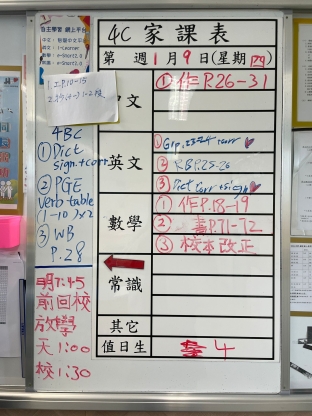 自主學習 網上平台
4C 家課表
第 週 1 月 9 日(星期四)
1. 工P.10-15
中文
① 作 P.26-31
英文
② RB P.25-26
③ Dict corr + sign
數學
① 作P.18-19
② 書P.71-72
③ 校本改正
常識
其它
值日生
4
4BC
① Dict
sign.+corr
② PGE
Verb table
(1-10)x2
③ WB
P.28
明7:45
前回校
放學
天1:00
校1:30